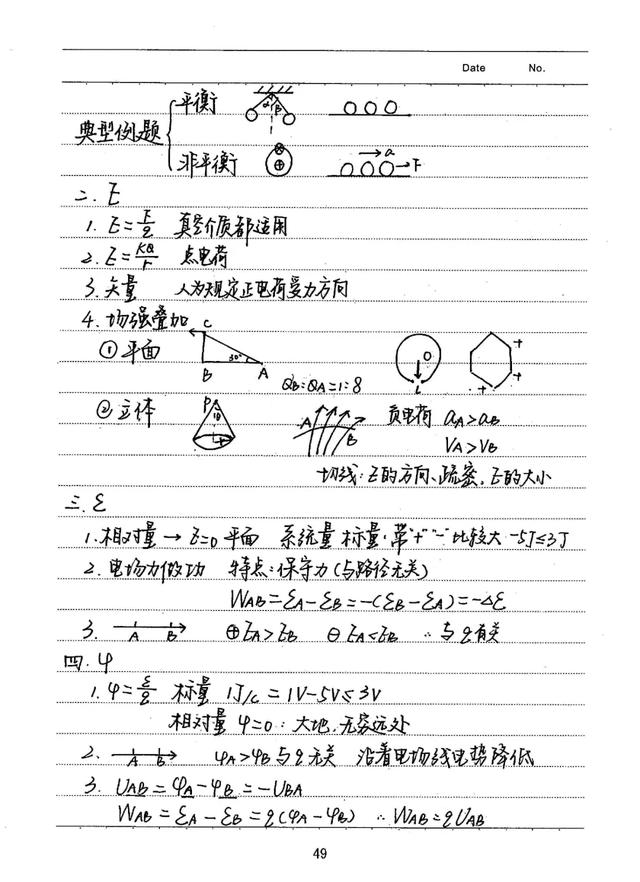 Date No.
典型例题
平衡
α β
非平衡
a F
二. E
1. E=F/q 真空介质都适用
2. E=KQ/r 点电荷
3. 矢量 人为规定正电荷受力方向
4. 场强叠加
① 平面
C B 30° A
QB:QA=1:8
O
+ + + +
② 立体
P
A B
负电荷 aA>aB
VA>VB
切线:E的方向、疏密,E的大小
三. ε
1. 相对量→ε=0平面 系统量 标量·带"+""-"比较大 -5J≤3J
2. 电场力做功 特点:保守力(与路径无关)
WAB=εA-εB=-(εB-εA)=-Δε
3. A B ⊕EA>EB ⊖EA<EB ∴与q有关
四. φ
1. φ=ε/q 标量 1J/C=1V -5V≤3V
相对量 φ=0:大地,无穷远处
2. A B φA>φB与q无关 沿着电场线电势降低
3. UAB=φA-φB=-UBA
WAB=εA-εB=q(φA-φB) ∴WAB=qUAB
49